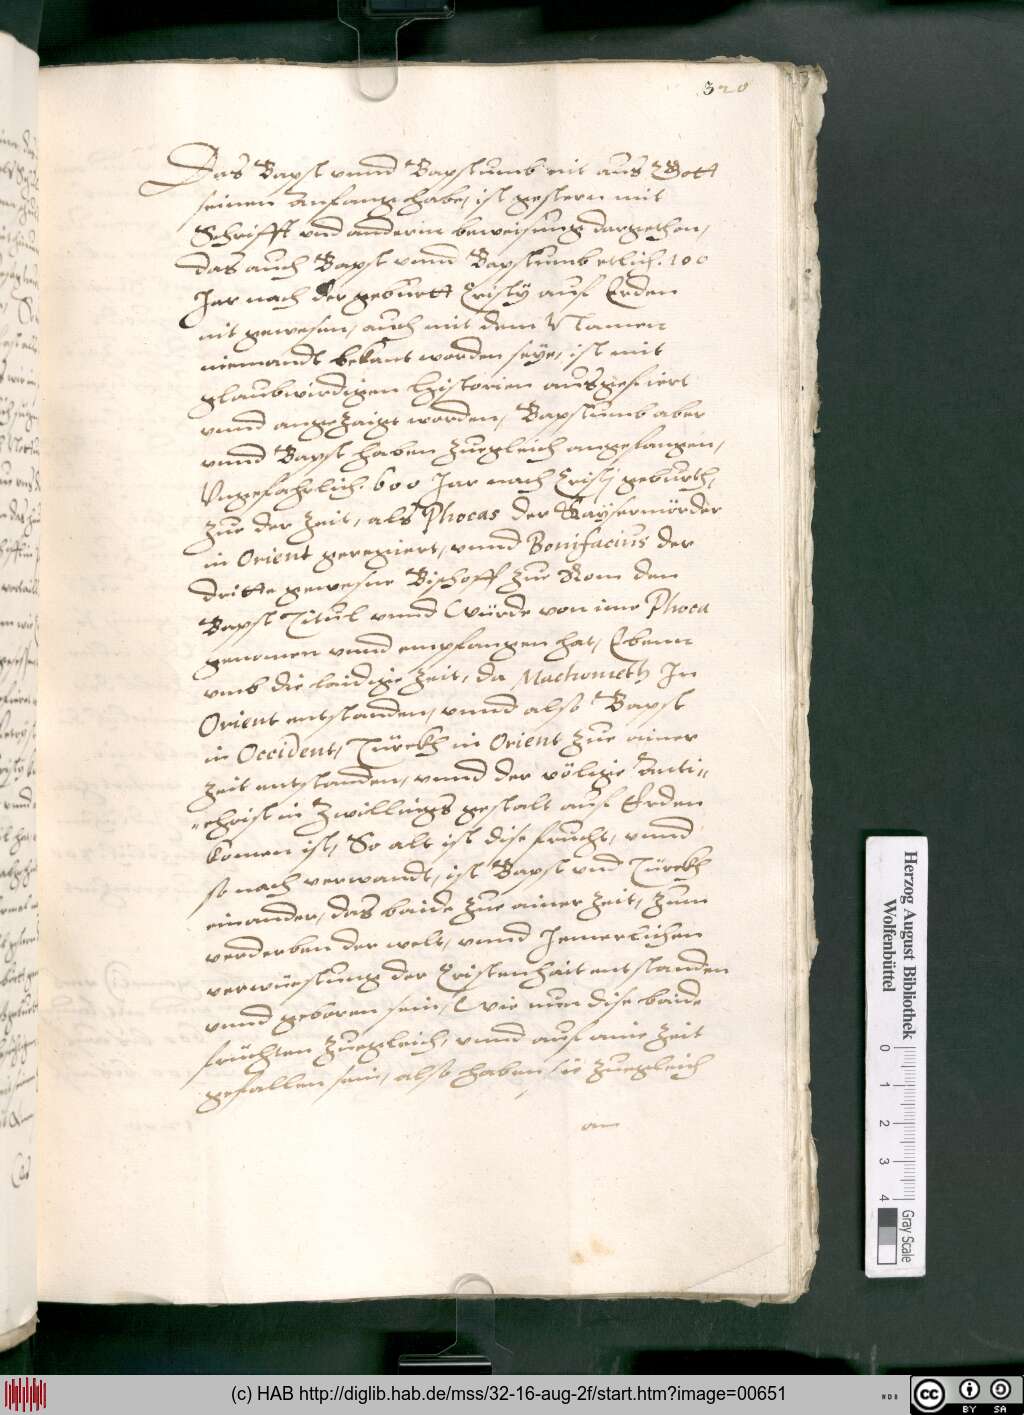 320
Das Bapst vnnd Bapstumb nit aus Gott
seinen anfang habe, ist gestern mit
Schrifft vnd anderm beweisung dargethon,
das auch Bapst vnnd Bapstumb etlich. 100
Jar nach der geburtt Cristÿ auf Erden
nit gewesen, auch mit dem Namen
niemandt bekant worden seÿe, ist mit
glaubwirdigen Historien ausgefiert
vnnd angezaigt worden, Bapstumb aber
vnnd Bapst haben zuegleich angefangen,
Vngefahrlich. 600 Jar nach Cristj geburth,
zue der Zeit, als Phocas der Kaÿsermörder
in Orient geregiert, vnnd Bonifacius der
dritte gewesne Bischoff zue Rom den
Bapst Titul vnnd Würde von ime Phoca
genomen vnnd empfangen hat, Ebenn
vmb die laidige Zeit, da Machometh In
Orient entstanden, vnnd also Bapst
in Occident, Türckh in Orient zue ainer
Zeit entstanden, vnnd der völlige Anti=
=christ in Zwillings gestalt auf Erden
komen ist, So alt ist dise frucht, vnnd
so nach verwandt, ist Bapst vnd Türckh
einander, das baide zue ainer Zeit, zum
verderben der welt, vnnd Jemerlichen
verwüestung der Cristenhait entstanden
vnnd geboren sein, Wie nun dise baide
früchten zuegleich, vnnd auf aine Zeit
gefallen sein, also haben sie zuegleich
an
Herzog August Bibliothek
Wolfenbüttel
0 1 2 3 4
Gray Scale
(c) HAB http://diglib.hab.de/mss/32-16-aug-2f/start.htm?image=00651
WDB
cc
BY SA